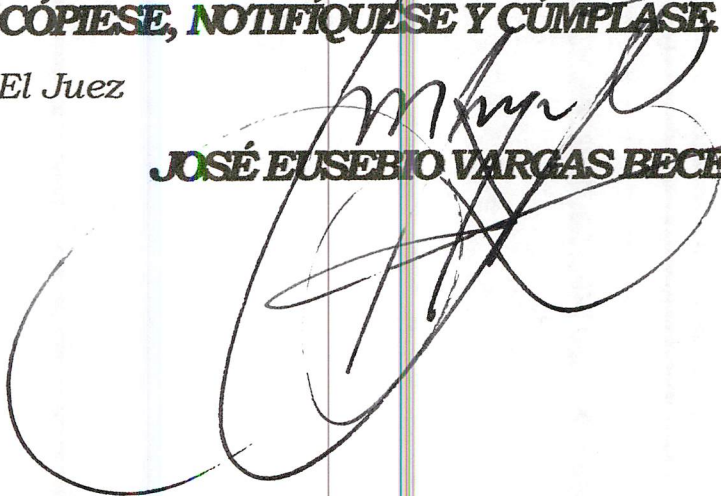 CÓPIESE, NOTIFÍQUESE Y CÚMPLASE.
El Juez
JOSÉ EUSEBIO VARGAS BECE